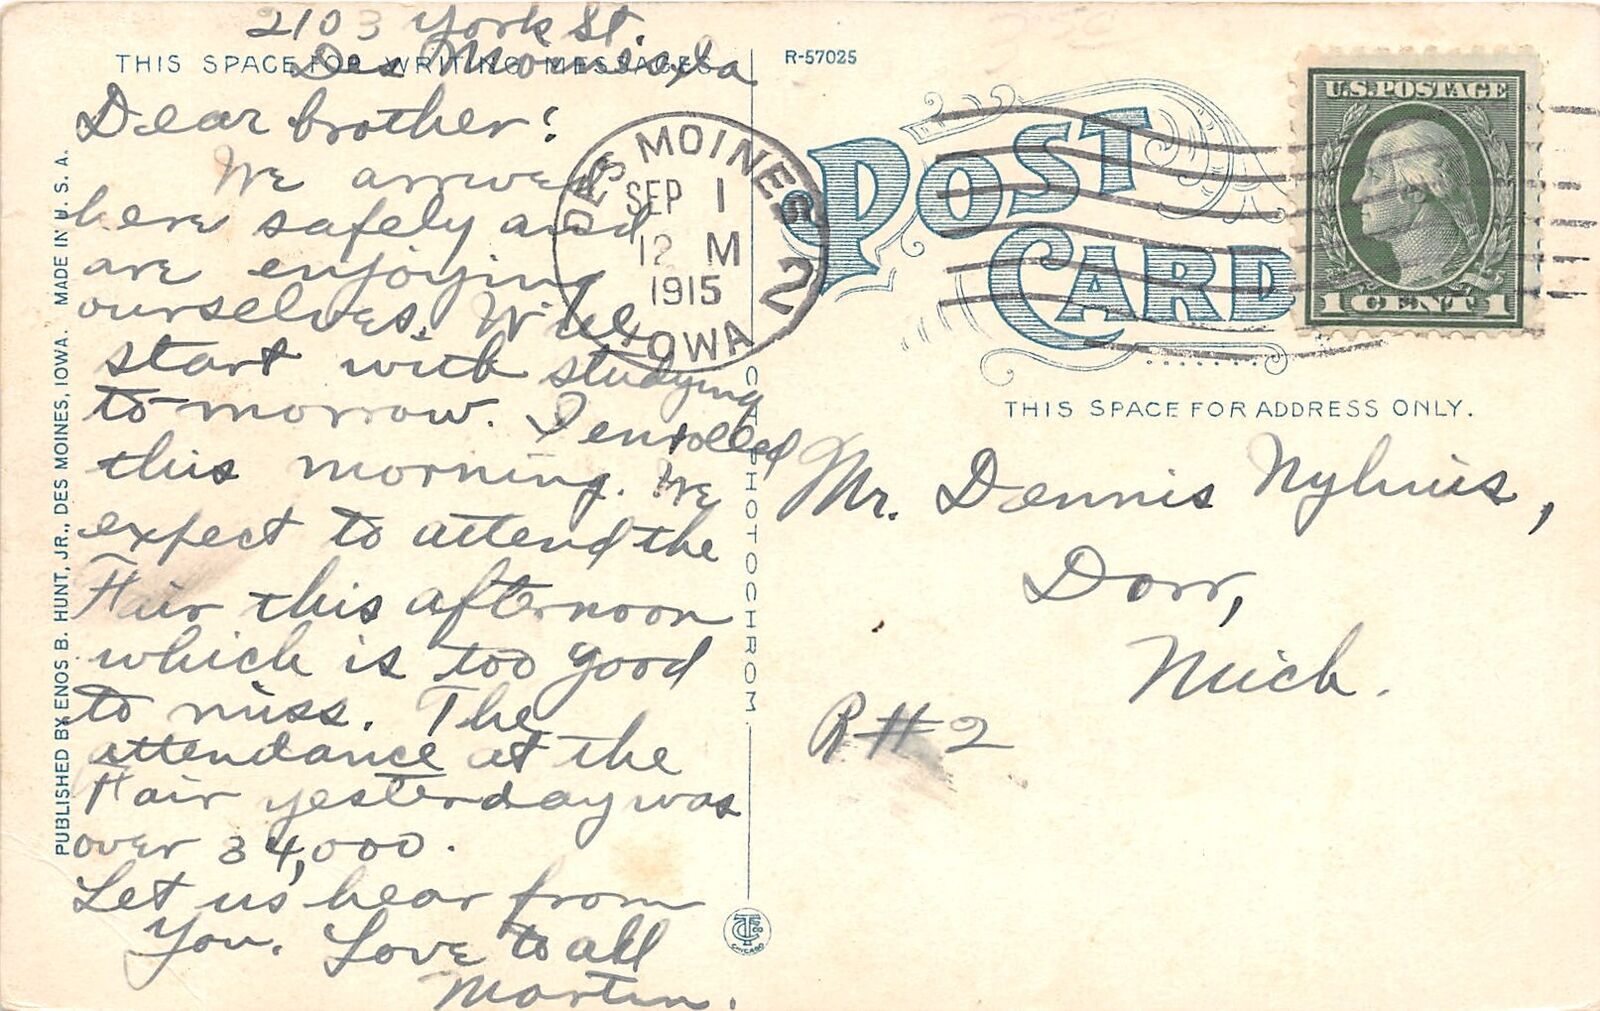 2103 York St.
Des Moines, Ia
THIS SPACE FOR WRITING MESSAGES
Dear brother:
We arrived
here safely and
are enjoying
ourselves. Will
start with studying
to-morrow. I enrolled
this morning. We
expect to attend the
Fair this afternoon
which is too good
to miss. The
attendance at the
Fair yesterday was
over 34,000.
Let us hear from
you. Love to all
Martin.
PUBLISHED BY ENOS B. HUNT, JR., DES MOINES, IOWA. MADE IN U. S. A.
C. T. PHOTOCHROM
CHICAGO
R-57025
POST
CARD
DES MOINES
SEP 1
12 M
1915
IOWA
2
U.S. POSTAGE
1 CENT 1
THIS SPACE FOR ADDRESS ONLY.
Mr. Dennis Nyhuis,
Dorr,
Mich.
R#2